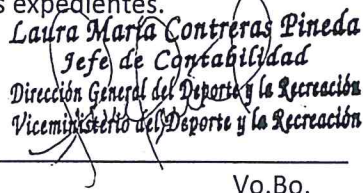 s expedientes.
Laura María Contreras Pineda
Jefe de Contabilidad
Dirección General del Deporte y la Recreación
Viceministerio del Deporte y la Recreación
Vo.Bo.